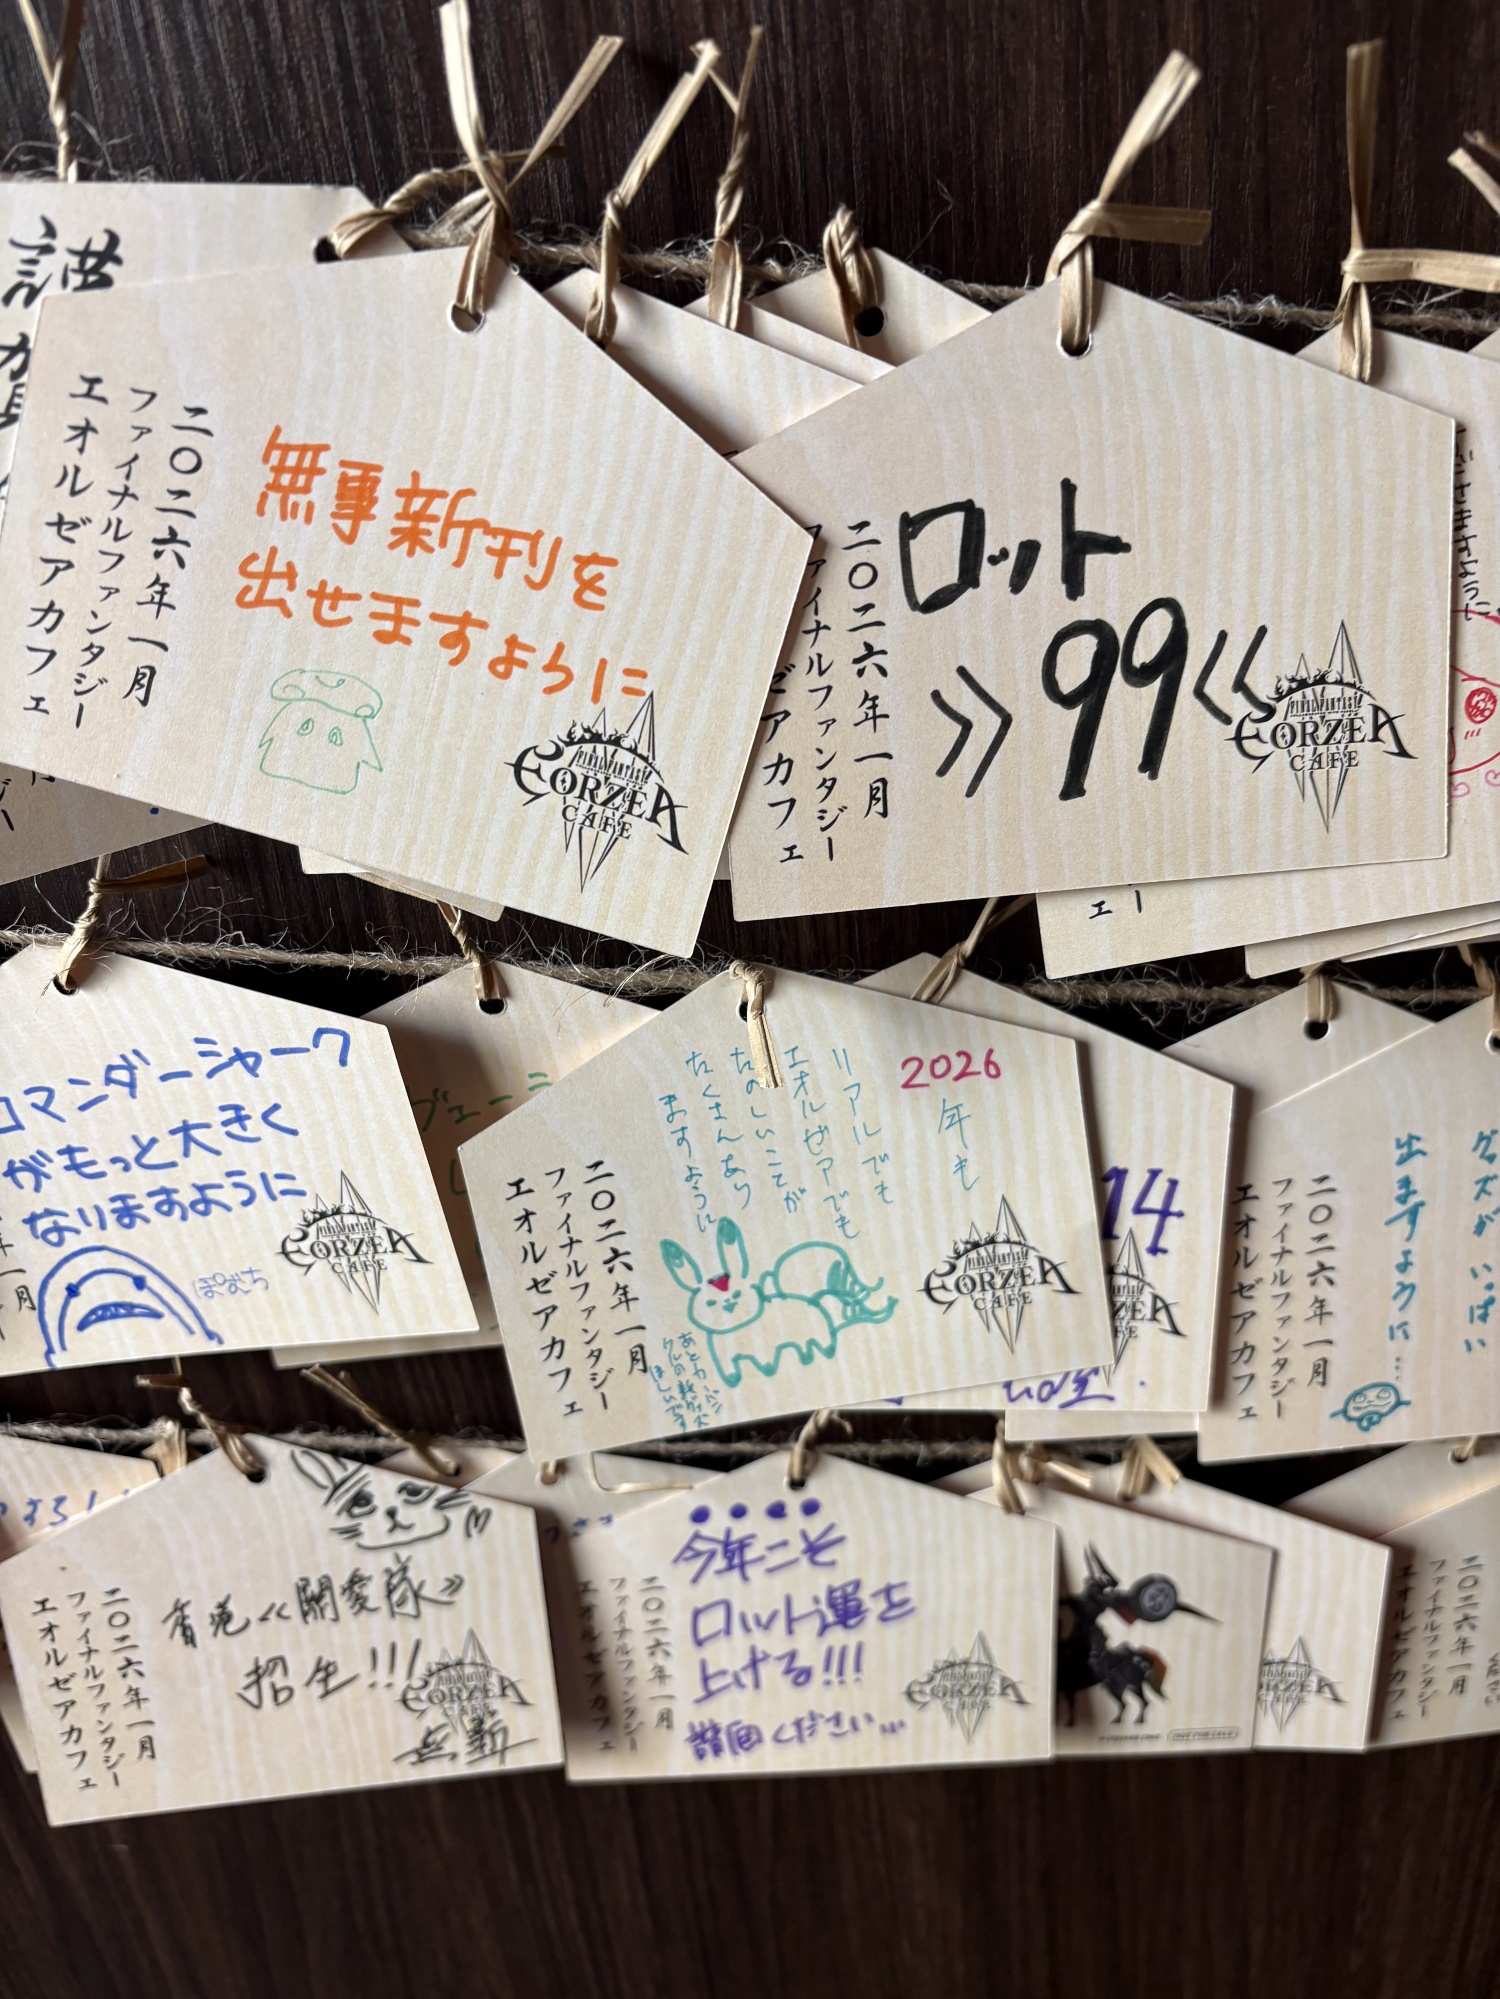 謹
賀
二〇二六年一月
ファイナルファンタジー
エオルゼアカフェ
無事新刊を
出せますように
FINAL FANTASY
EORZEA
CAFE
二〇二六年一月
ファイナルファンタジー
エオルゼアカフェ
ロット
》99《
FINAL FANTASY
EORZEA
CAFE
ございますように
コマンダーシャーク
がもっと大きく
なりますように
ぽむち
EORZEA
CAFE
2026
年も
リアルでも
エオルゼアでも
たのしいことが
たくさんあり
ますように
ほしいです
二〇二六年一月
ファイナルファンタジー
エオルゼアカフェ
EORZEA
CAFE
14
グッズが いっぱい
出ますように…
二〇二六年一月
ファイナルファンタジー
エオルゼアカフェ
香港《關愛隊》
招生!!!
二〇二六年一月
ファイナルファンタジー
エオルゼアカフェ
EORZEA
CAFE
今年こそ
ロット運を
上げる!!!
ください…
二〇二六年一月
ファイナルファンタジー
エオルゼアカフェ
EORZEA
CAFE
二〇二六年一月
ファイナルファンタジー
エオルゼアカフェ